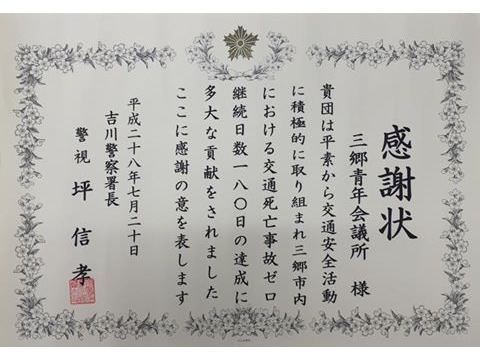 感謝状
三郷青年会議所 様
貴団は平素から交通安全活動
に積極的に取り組まれ三郷市内
における交通死亡事故ゼロ
継続日数一八〇日の達成に
多大な貢献をされました
ここに感謝の意を表します
平成二十八年七月二十日
吉川警察署長
警視 坪 信孝